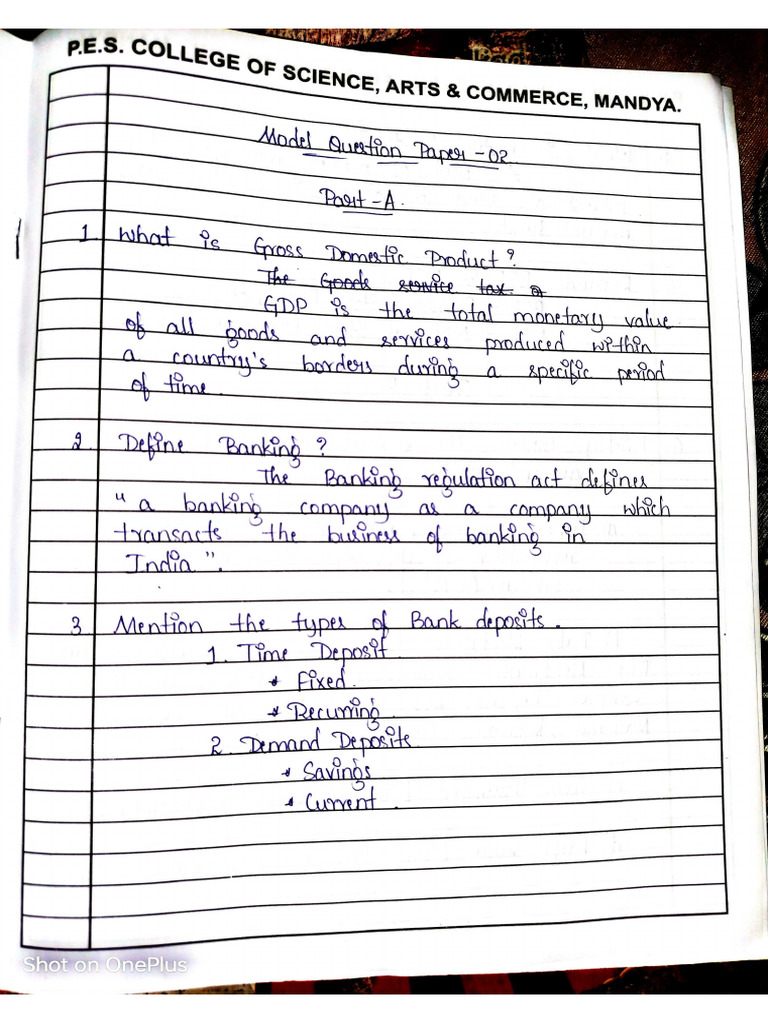 P.E.S. COLLEGE OF SCIENCE, ARTS & COMMERCE, MANDYA.
Model Question Paper -02
Part -A.
1 What is Gross Domestic Product?
The Goods service tax
GDP is the total monetary value
of all goods and services produced within
a country's borders during a specific period
of time.
2 Define Banking?
The Banking regulation act defines
"a banking company as a company which
transacts the business of banking in
India".
3 Mention the types of Bank deposits.
1. Time Deposit
* Fixed.
* Recurring
2. Demand Deposits
* Savings
* Current.
Shot on OnePlus